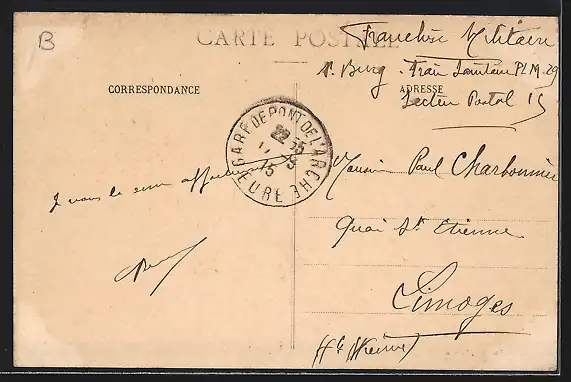 B
CARTE POSTALE
Franchise Militaire
Burg - Train Sanitaire P.L.M. 29
CORRESPONDANCE
ADRESSE
Secteur Postal 15
GARE DE PONT DE L'ARCHE
22 35
15
EURE
Monsieur Paul Charbonnier
Je vous
Quai St Etienne
Limoges
Hte Vienne